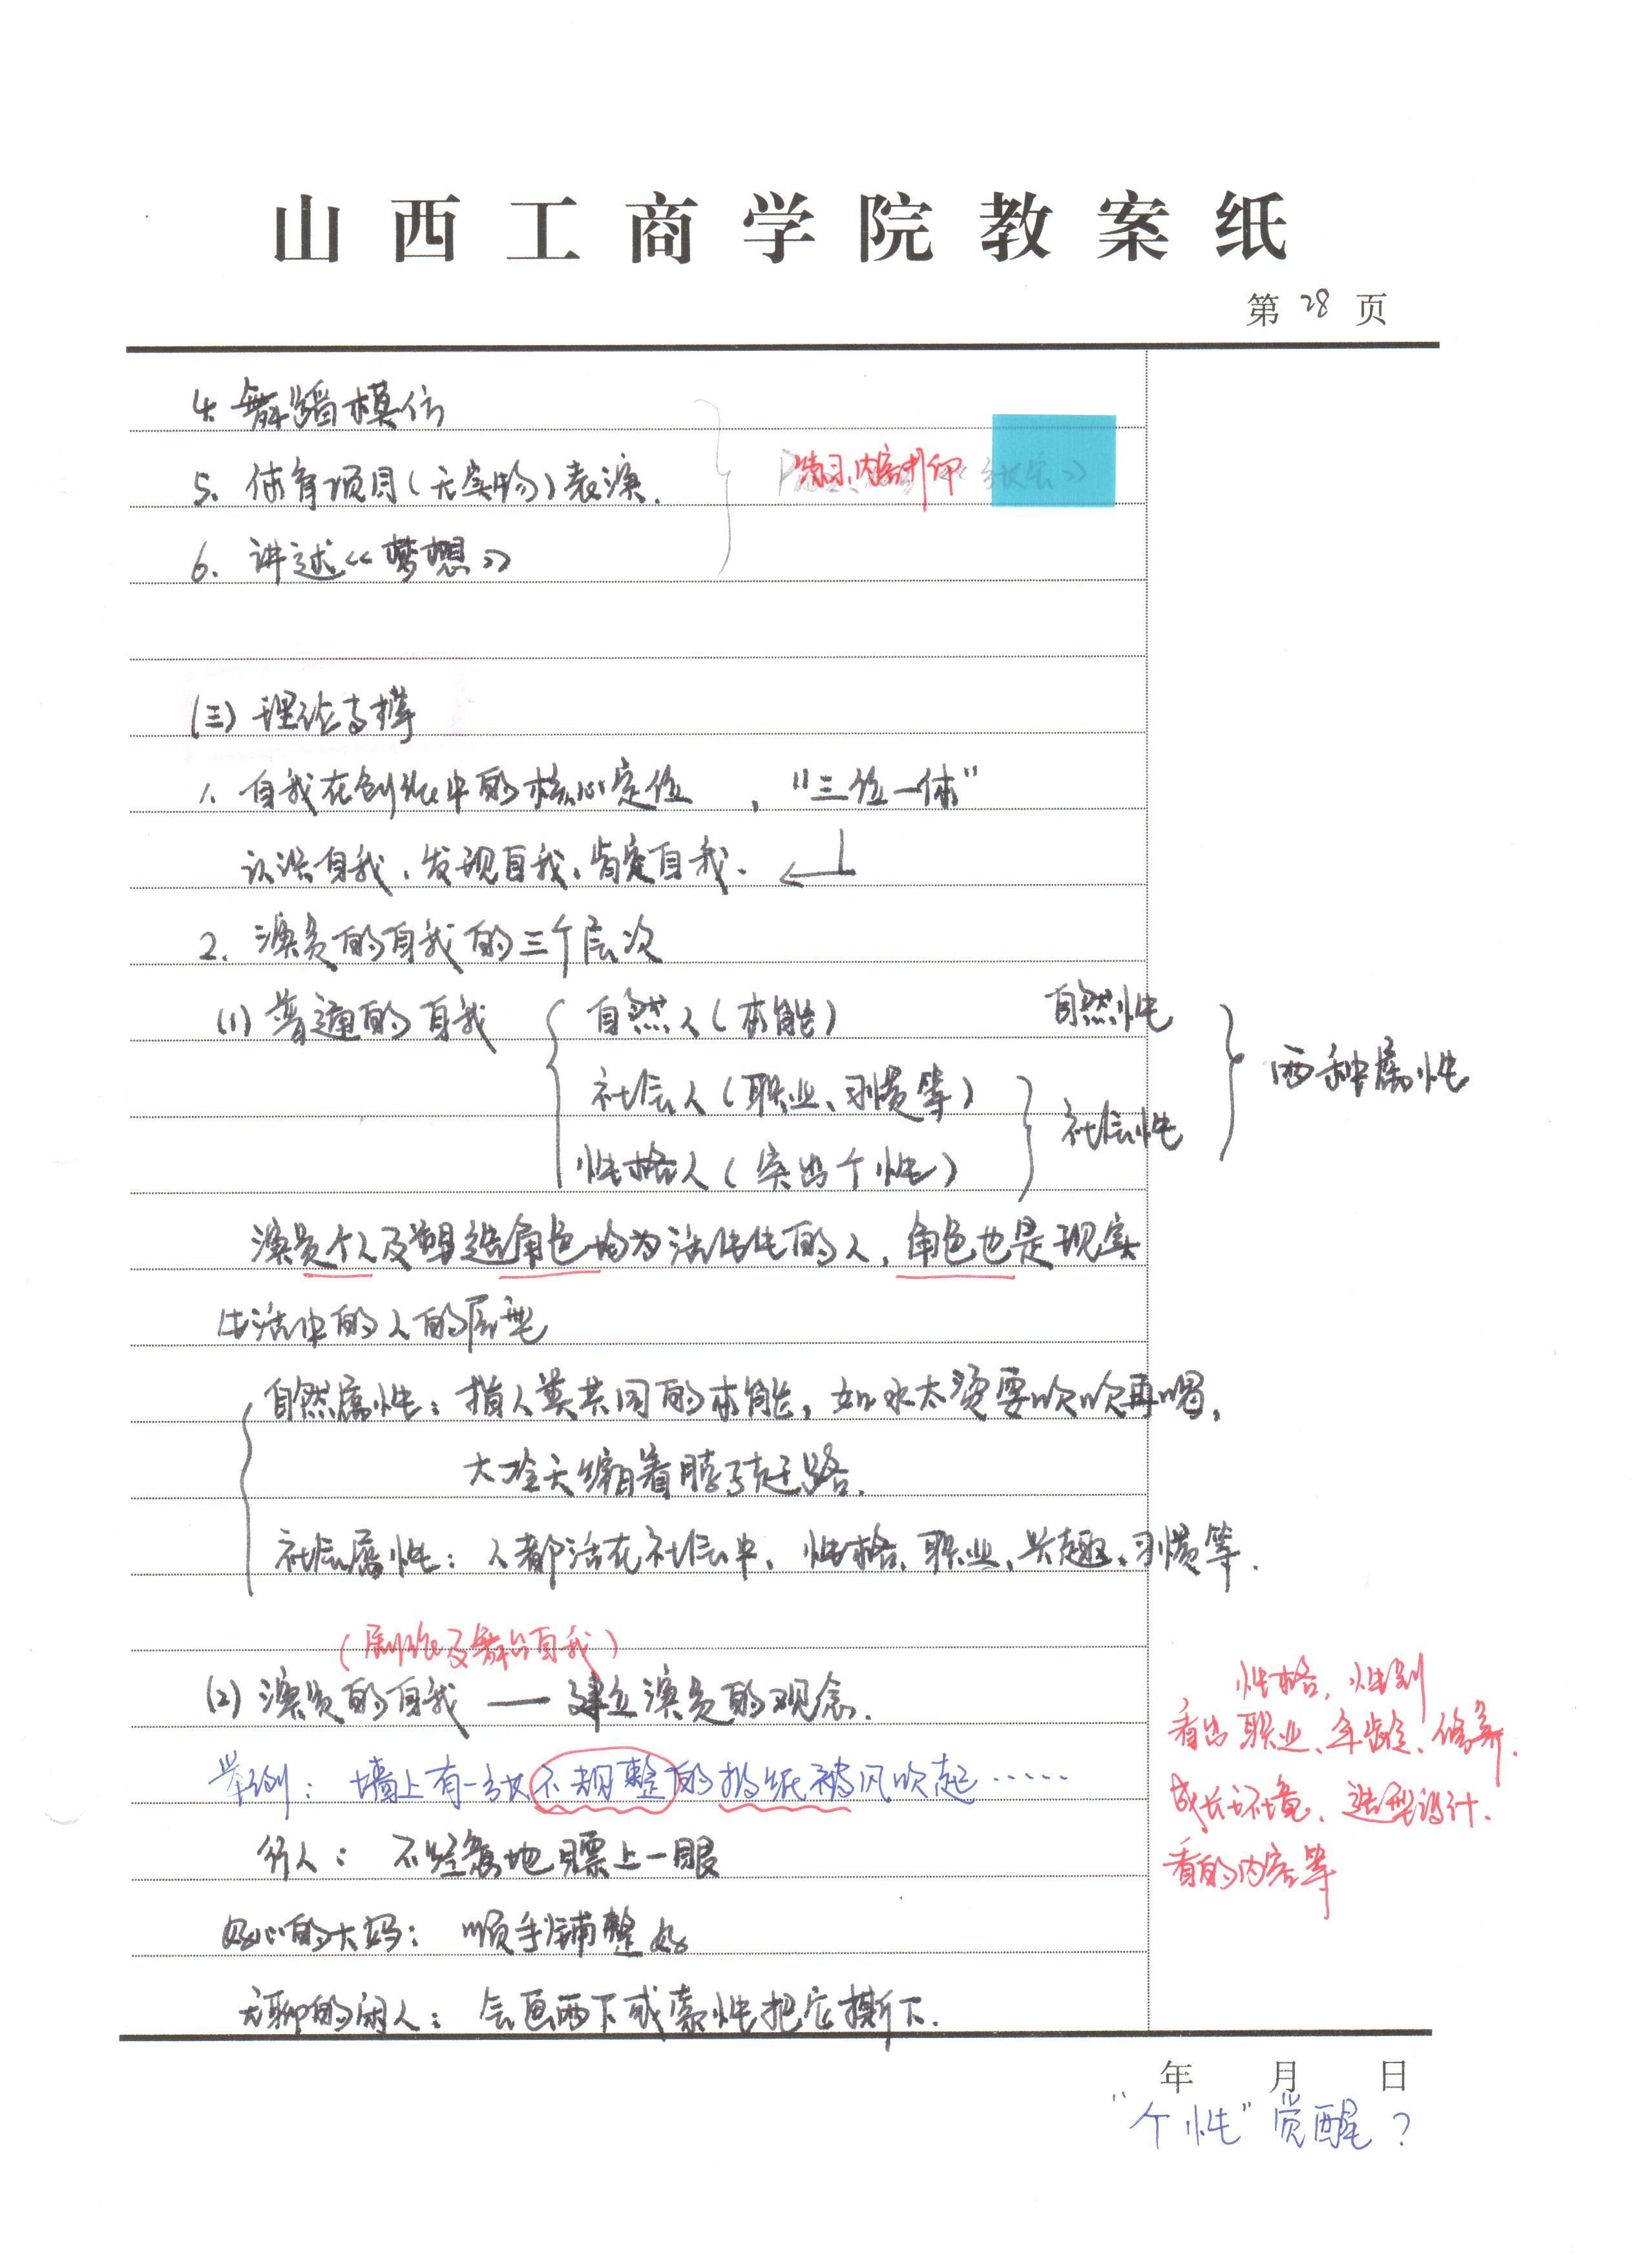 山西工商学院教案纸
第 28 页
4. 舞蹈模仿
5. 体育项目(无实物)表演.
6. 讲述《梦想》
(三) 理论支撑
1. 自我在创作中的核心定位 , “三位一体”
认识自我、发现自我、肯定自我.
2. 演员的自我的三个层次
(1) 普通的自我
自然人(本能) 自然性
社会人(职业、习惯等)
社会性
两种属性
性格人(突出个性)
演员个人及塑造角色均为活生生的人, 角色也是现实
生活中的人的原型
自然属性: 指人类共同的本能, 如水太烫要吹吹再喝,
大冷天缩着脖子赶路.
社会属性: 人都活在社会中, 性格、职业、兴趣、习惯等.
自我)
(2) 演员的自我 — 建立演员的观念.
举例: 墙上有一张不规整的报纸被风吹起……
行人: 不经意地瞟上一眼
好心的大妈: 顺手铺整好
无聊的闲人: 会画两下或索性把它撕下.
性格, 性别
看出职业、年龄、修养.
成长环境、造型设计.
看的内容等
年 月 日
“个性”觉醒?